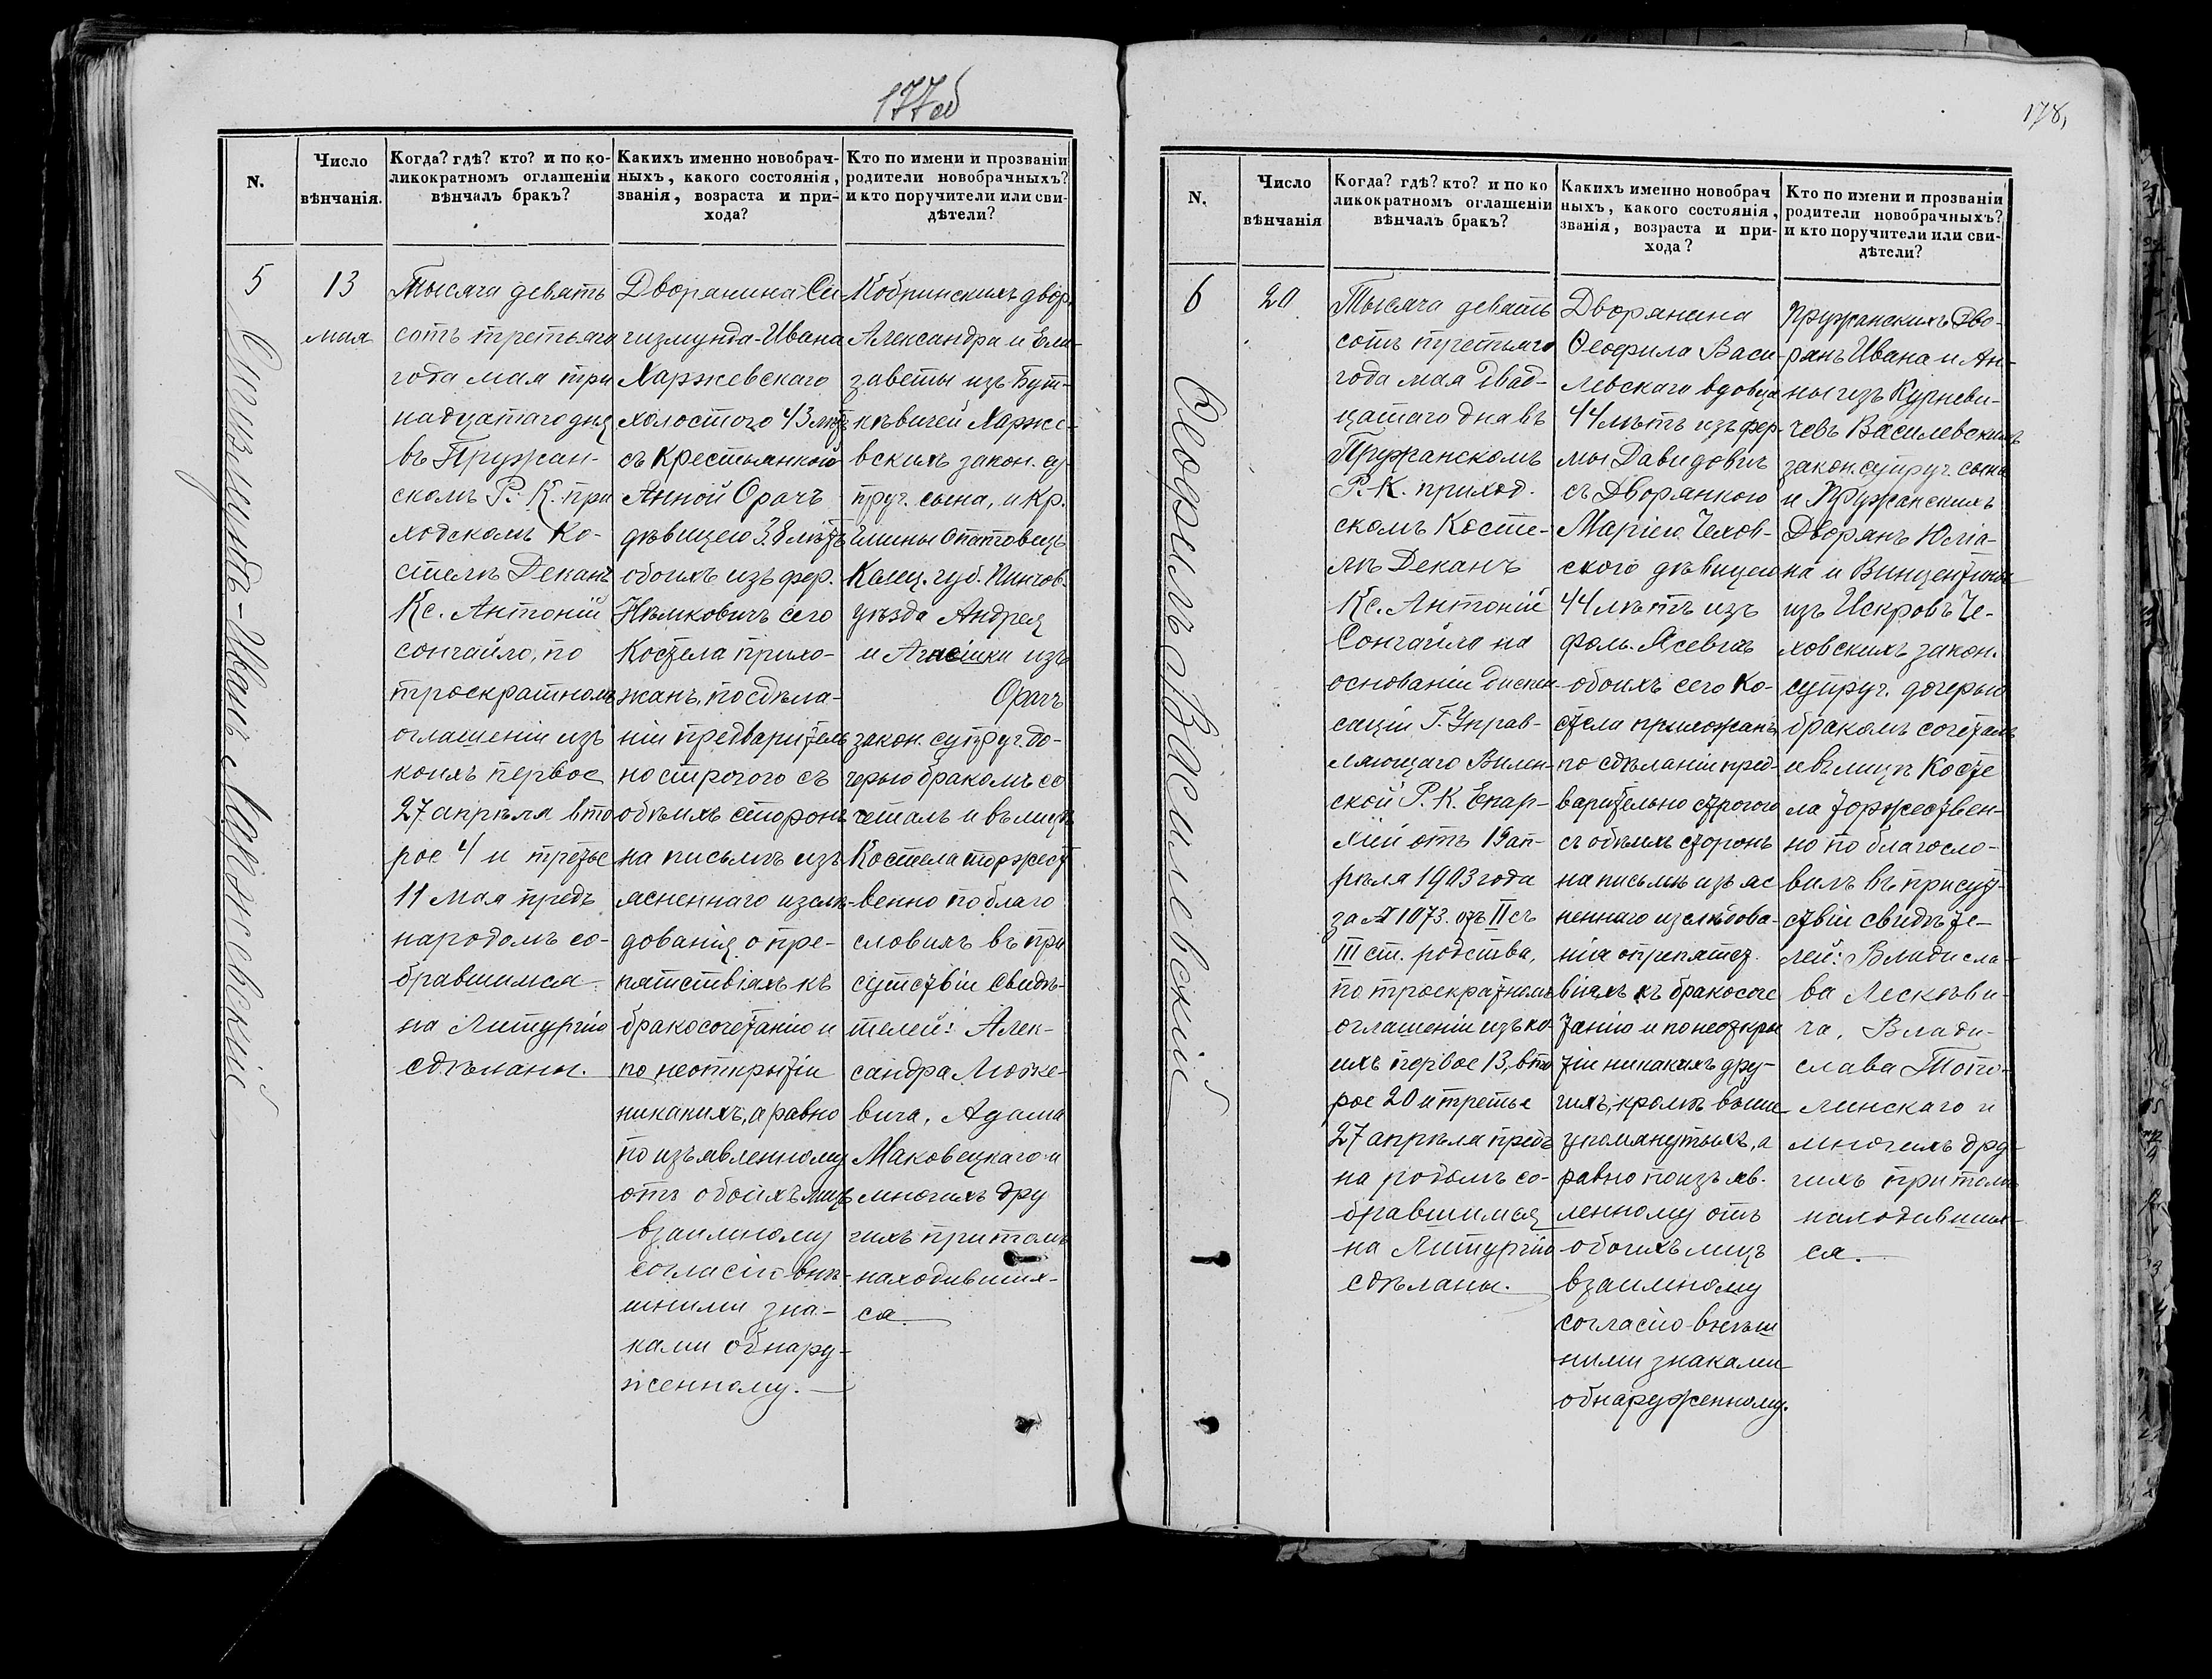 177об
N.
Число
вѣнчанія.
Когда? гдѣ? кто? и по ко-
ликократномъ оглашеніи
вѣнчалъ бракъ?
Какихъ именно новобрач-
ныхъ, какого состоянія,
званія, возраста и при-
хода?
Кто по имени и прозванію
родители новобрачныхъ?
и кто поручители или сви-
дѣтели?
5
Сигизмундъ-Иванъ Харжевскій
13
мая
Тысяча девять
сотъ третьяго
года мая три
надцатаго дня
въ Пружан-
скомъ Р. К. при
ходскомъ Ко-
стелѣ Деканъ
Кс. Антоній
Сонгайло, по
троекратномъ
оглашеніи изъ
коихъ первое
27 апрѣля вто
рое 4 и третье
11 мая предъ
народомъ со-
бравшимся
на Литургію
сдѣланы.
Дворянина Си-
гизмунда-Ивана
Харжевскаго
холостого 43 лѣтъ
съ Крестьянкой
Анной Орачъ
дѣвицею 38 лѣтъ
обоихъ изъ фер.
Нѣмковичъ сего
Костела прихо-
жанъ, по сдѣла-
ніи предваритель
но строгого съ
обѣихъ сторонъ
на письмѣ изъ
ясненнаго изслѣ-
дованія о пре-
пятствіяхъ къ
бракосочетанію и
по неоткрытіи
никакихъ, а равно
по изъявленному
отъ обоихъ лицъ
взаимному
согласію внѣ-
шними зна-
ками обнару-
женному.
Кобринскихъ двор.
Александра и Ели-
заветы изъ Бут-
кѣвичей Харже-
вскихъ закон. су
пруг. сына, и Кр.
Гмины Опатовецъ
Келец. губ. Пинчов.
уѣзда Андрея
и Агнешки изъ
Орачъ
закон. супруг. до-
черью бракомъ со
четалъ и въ лицѣ
Костела торжест
венно по благо
словилъ въ при
сутствіи свидѣ-
телей: Алек-
сандра Мотке-
вича, Адама
Маковецкаго и
многихъ дру
гихъ при томъ
находивших-
ся.
178,
N.
Число
вѣнчанія
Когда? гдѣ? кто? и по ко
ликократномъ оглашеніи
вѣнчалъ бракъ?
Какихъ именно новобрач
ныхъ, какого состоянія,
званія, возраста и при-
хода?
Кто по имени и прозваніи
родители новобрачныхъ?
и кто поручители или сви-
дѣтели?
6
Ѳеофилъ Василевскій
20
Тысяча девять
сотъ третьяго
года мая двад-
цатаго дна въ
Пружанскомъ
Р.-К. приход.
скомъ Косте-
лѣ Деканъ
Кс. Антоній
Сонгайло на
основаніи диспен-
саціи Г. Управ-
ляющаго Вилен-
ской Р. К. Епар-
хіей отъ 19 ап-
рѣля 1903 года
за № 1073. отъ II съ
III ст. родства,
по троекратномъ
оглашеніи изъ ко-
ихъ первое 13, вто
рое 20 и третье
27 апрѣля предъ
на родомъ со-
бравшимся
на Литургію
сдѣланы.
Дворянина
Ѳеофила Васи-
левскаго вдовца
44 лѣтъ изъ фер-
мы Давидовичъ
съ Дворянкою
Маріею Чехов-
ского дѣвицею
44 лѣтъ изъ
фоль. Ясевичъ
обоихъ сего Ко-
стела прихожанъ
по сдѣланіи пред-
варительно строгого
съ обѣихъ сторонъ
на письмѣ изъ яс
неннаго изслѣдова-
нія о препятст
віяхъ къ бракосоче
танію и по неоткры
тіи никакихъ дру-
гихъ, кромѣ выше
упомянутыхъ, а
равно по изъяв.
ленному отъ
обоихъ лицъ
взаимному
согласію внѣш
ними знаками
обнаруженному.
Пружанскихъ Дво-
рянъ Ивана и Ан-
ны изъ Курневи-
чевъ Василевскихъ
закон. супруг. сына
и Пружанскихъ
Дворянъ Юліа-
на и Винцентины
изъ Искровъ Че-
ховскихъ закон.
супруг. дочерью
бракомъ сочеталъ
и въ лицѣ Косте
ла торжествен-
но по благосло-
вилъ въ присут-
ствіи свидѣте-
лей: Владисла-
ва Лескѣви-
ча, Влади-
слава Топо-
линскаго и
многихъ дру-
гихъ при томъ
находивших-
ся.